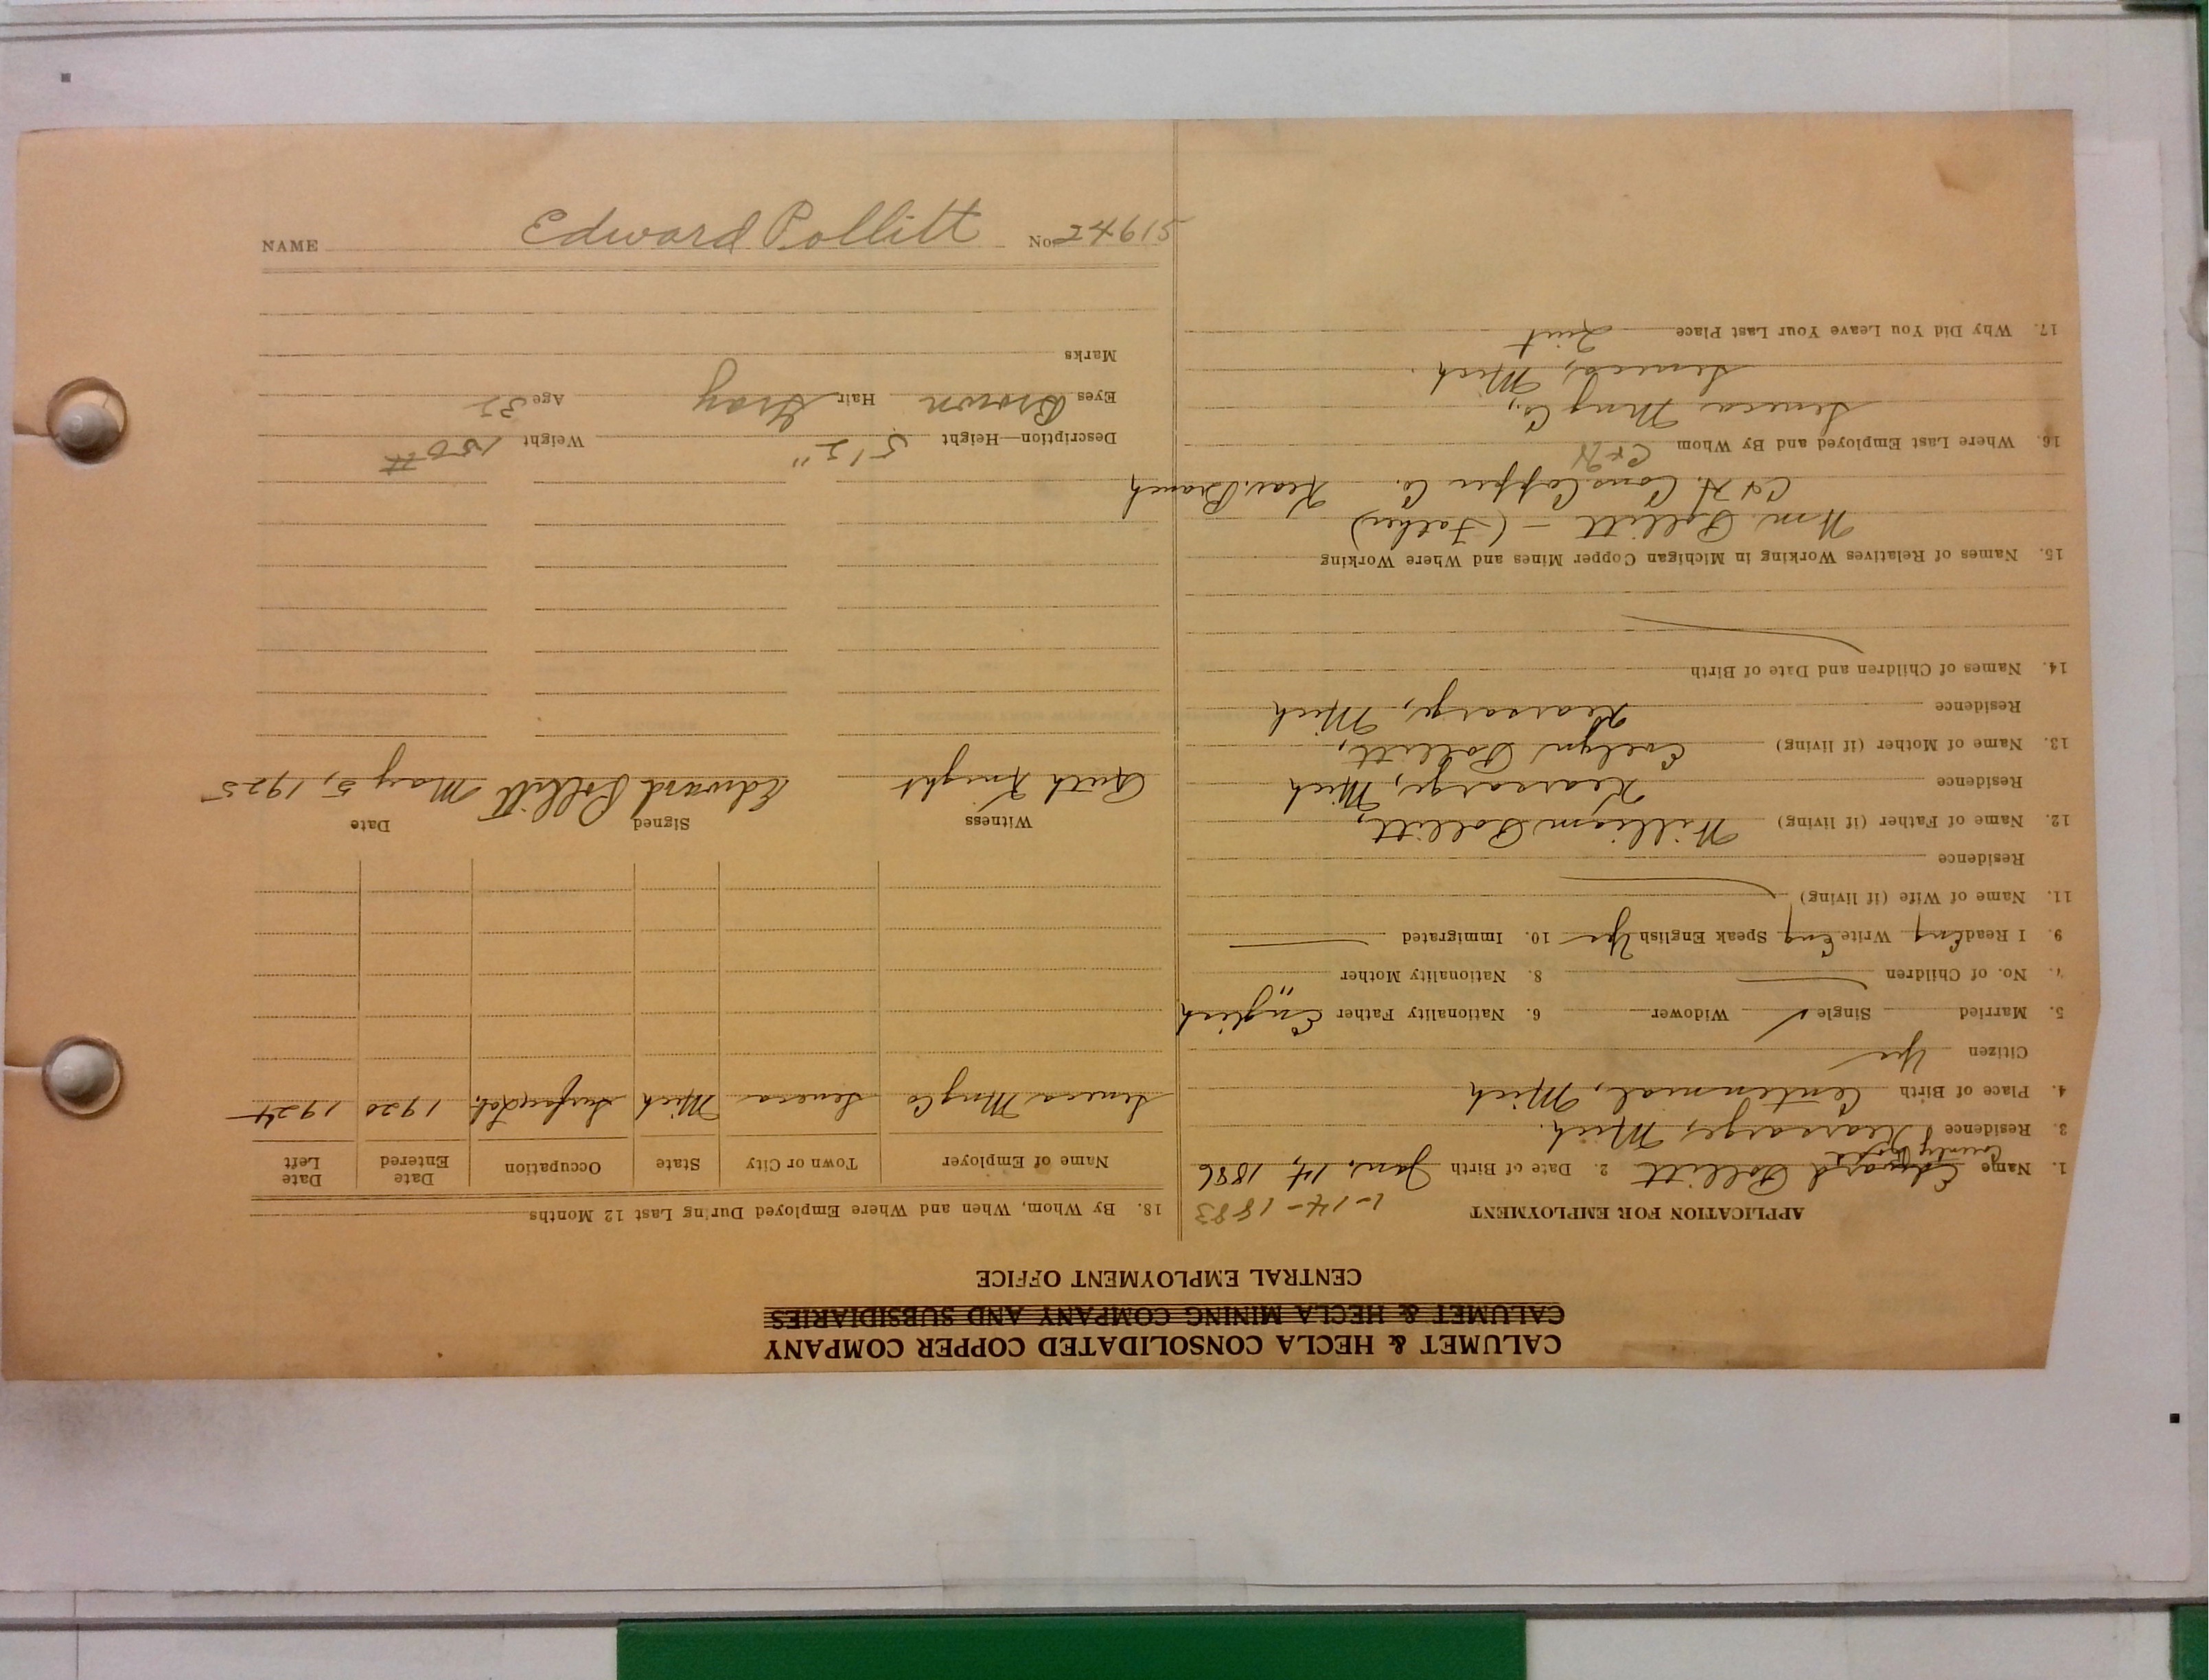 CALUMET & HECLA CONSOLIDATED COPPER COMPANY
CALUMET & HECLA MINING COMPANY AND SUBSIDIARIES
CENTRAL EMPLOYMENT OFFICE
APPLICATION FOR EMPLOYMENT 1-14-1883
1. Name Edward Pollitt 2. Date of Birth Jan. 14, 1886
County
3. Residence Kearsarge, Mich.
4. Place of Birth Centennial, Mich
Citizen Yes
5. Married Single ✓ Widower 6. Nationality Father English
7. No. of Children 8. Nationality Mother "
9. I Read Eng Write Eng Speak English Yes 10. Immigrated
11. Name of Wife (if living)
Residence
12. Name of Father (if living) William Pollitt,
Residence Kearsarge, Mich
13. Name of Mother (if living) Evelyn Pollitt,
Residence Kearsarge, Mich
14. Names of Children and Date of Birth
15. Names of Relatives Working in Michigan Copper Mines and Where Working
Wm. Pollitt - (Father)
C & H. Cons Copper Co. Kear. Branch
16. Where Last Employed and By Whom C & H
Seneca Mng Co.,
Seneca, Mich.
17. Why Did You Leave Your Last Place Quit
18. By Whom, When and Where Employed During Last 12 Months
Name of Employer Town or City State Occupation Date Entered Date Left
Seneca Mng Co Seneca Mich Surface Lab. 1920 1924
Witness Signed Date
Ruth Knight Edward Pollitt May 5, 1925
Description—Height 5'2" Weight 150 #
Eyes Brown Hair Gray Age
Marks
NAME Edward Pollitt No. 24615